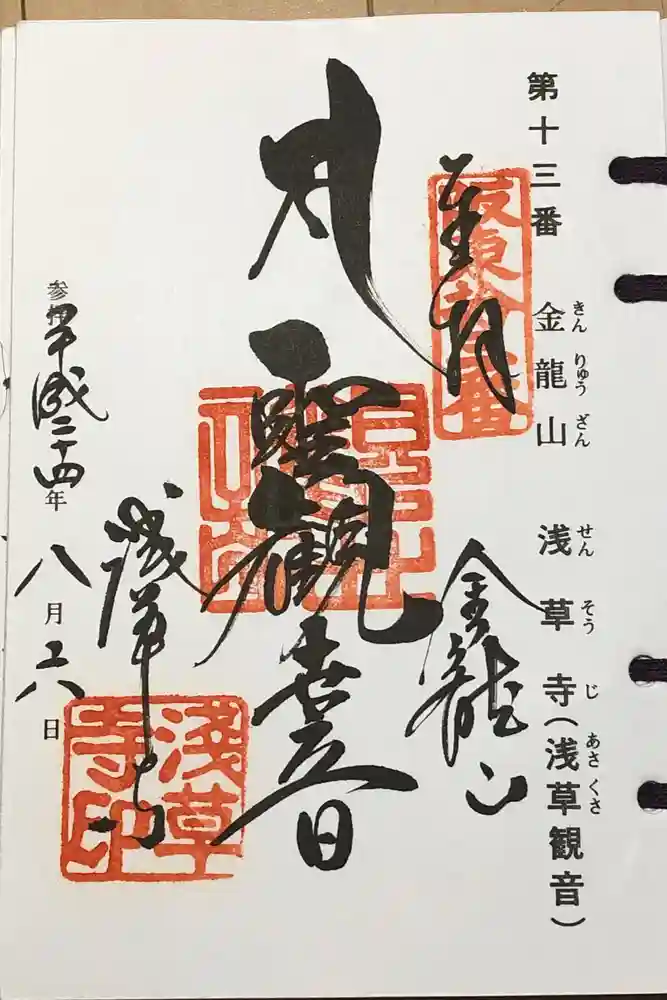 第十三番 金龍山 浅草寺(浅草観音)
きん りゅう ざん せん そう じ あさ くさ
坂東拾三番
奉拝
金龍山
聖観世音
浅草寺
淺草寺印
参拝 平成二十四年 八月二十八日